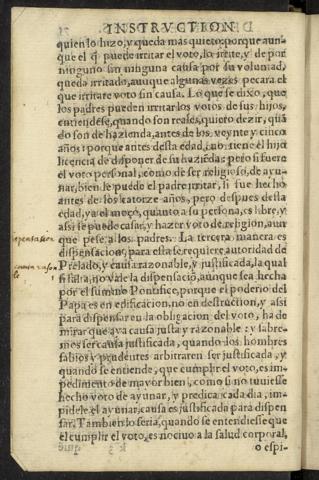 INSTRVCTION
quien lo hizo, y queda mas quieto: porque aun-
que el q̃ puede irritar el voto, lo irrite, y de por
ninguno sin ninguna causa por su voluntad,
queda irritado, auuque algunas vezes pecara el
que irritare voto sin causa. Lo que se dixo, que
los padres pueden irritar los votos de sus hijos,
entiendese, quando son reales, quiero dezir, quã
do son de hazienda, antes de los veynte y cinco
años: porque antes desta edad, no tiene el hijo
licencia de disponer de su haziẽda: pero si fuere
el voto personal, como de ser religioso, de ayu-
nar, bien le puede el padre irritar, si fue hecho
antes de los catorze años, pero despues desta
edad, ya el moço, quanto a su persona, es libre, y
assi se puede casar, y hazer voto de religion, aun
que pese a los padres. La tercera manera es
dispensacion, para esta se requiere autoridad de
Prelado, y causa razonable, y justificada, la qual
si falta, no vale la dispensaciõ, aunque sea hecha
por el summo Pontifice, porque el poderio del
Papa es en edificacion, no en destruction, y assi
para dispensar en la obligacion del voto, ha de
mirar que aya causa justa y razonable: y sabre-
mos ser causa justificada, quando los hombres
sabios y prudentes arbitraren ser justificada, y
quando se entiende, que cumplir el voto, es im-
pedimento de mayor bien, como si no tuuiesse
hecho voto de ayunar, y predica cada dia, im-
pidele el ayunar, causa es justificada para dispen
sar. Tambien lo seria, quando se entendiesse que
el cumplir el voto, es nociuo a la salud corporal,
o espi-